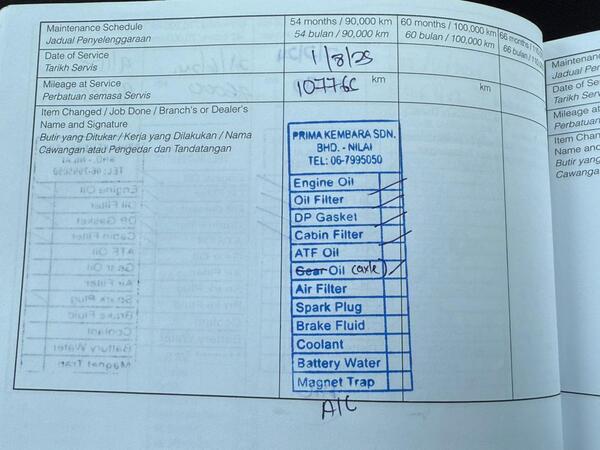 Maintenance Schedule
Jadual Penyelenggaraan
54 months / 90,000 km
54 bulan / 90,000 km
60 months / 100,000 km
60 bulan / 100,000 km
66 months /
66 bulan /
Date of Service
Tarikh Servis
1/8/25
Mileage at Service
Perbatuan semasa Servis
km
km
Item Changed / Job Done / Branch's or Dealer's
Name and Signature
Butir yang Ditukar / Kerja yang Dilakukan / Nama
Cawangan atau Pengedar dan Tandatangan
PRIMA KEMBARA SDN.
BHD. - NILAI
TEL: 06-7995050
Engine Oil
Oil Filter
DP Gasket
Cabin Filter
ATF Oil
Gear Oil (axle)
Air Filter
Spark Plug
Brake Fluid
Coolant
Battery Water
Magnet Trap
A/C
Maintenance
Jadual
Date of
Tarikh Servis
Mileage at
Perbatuan
Item
Name and
Butir yang
Cawangan